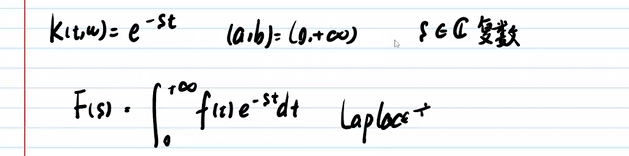 K(t,u) = e^{-st} (a,b) = (0,+∞) s ∈ ℂ 复数
F(s) = ∫_0^{+∞} f(t) e^{-st} dt Laplace